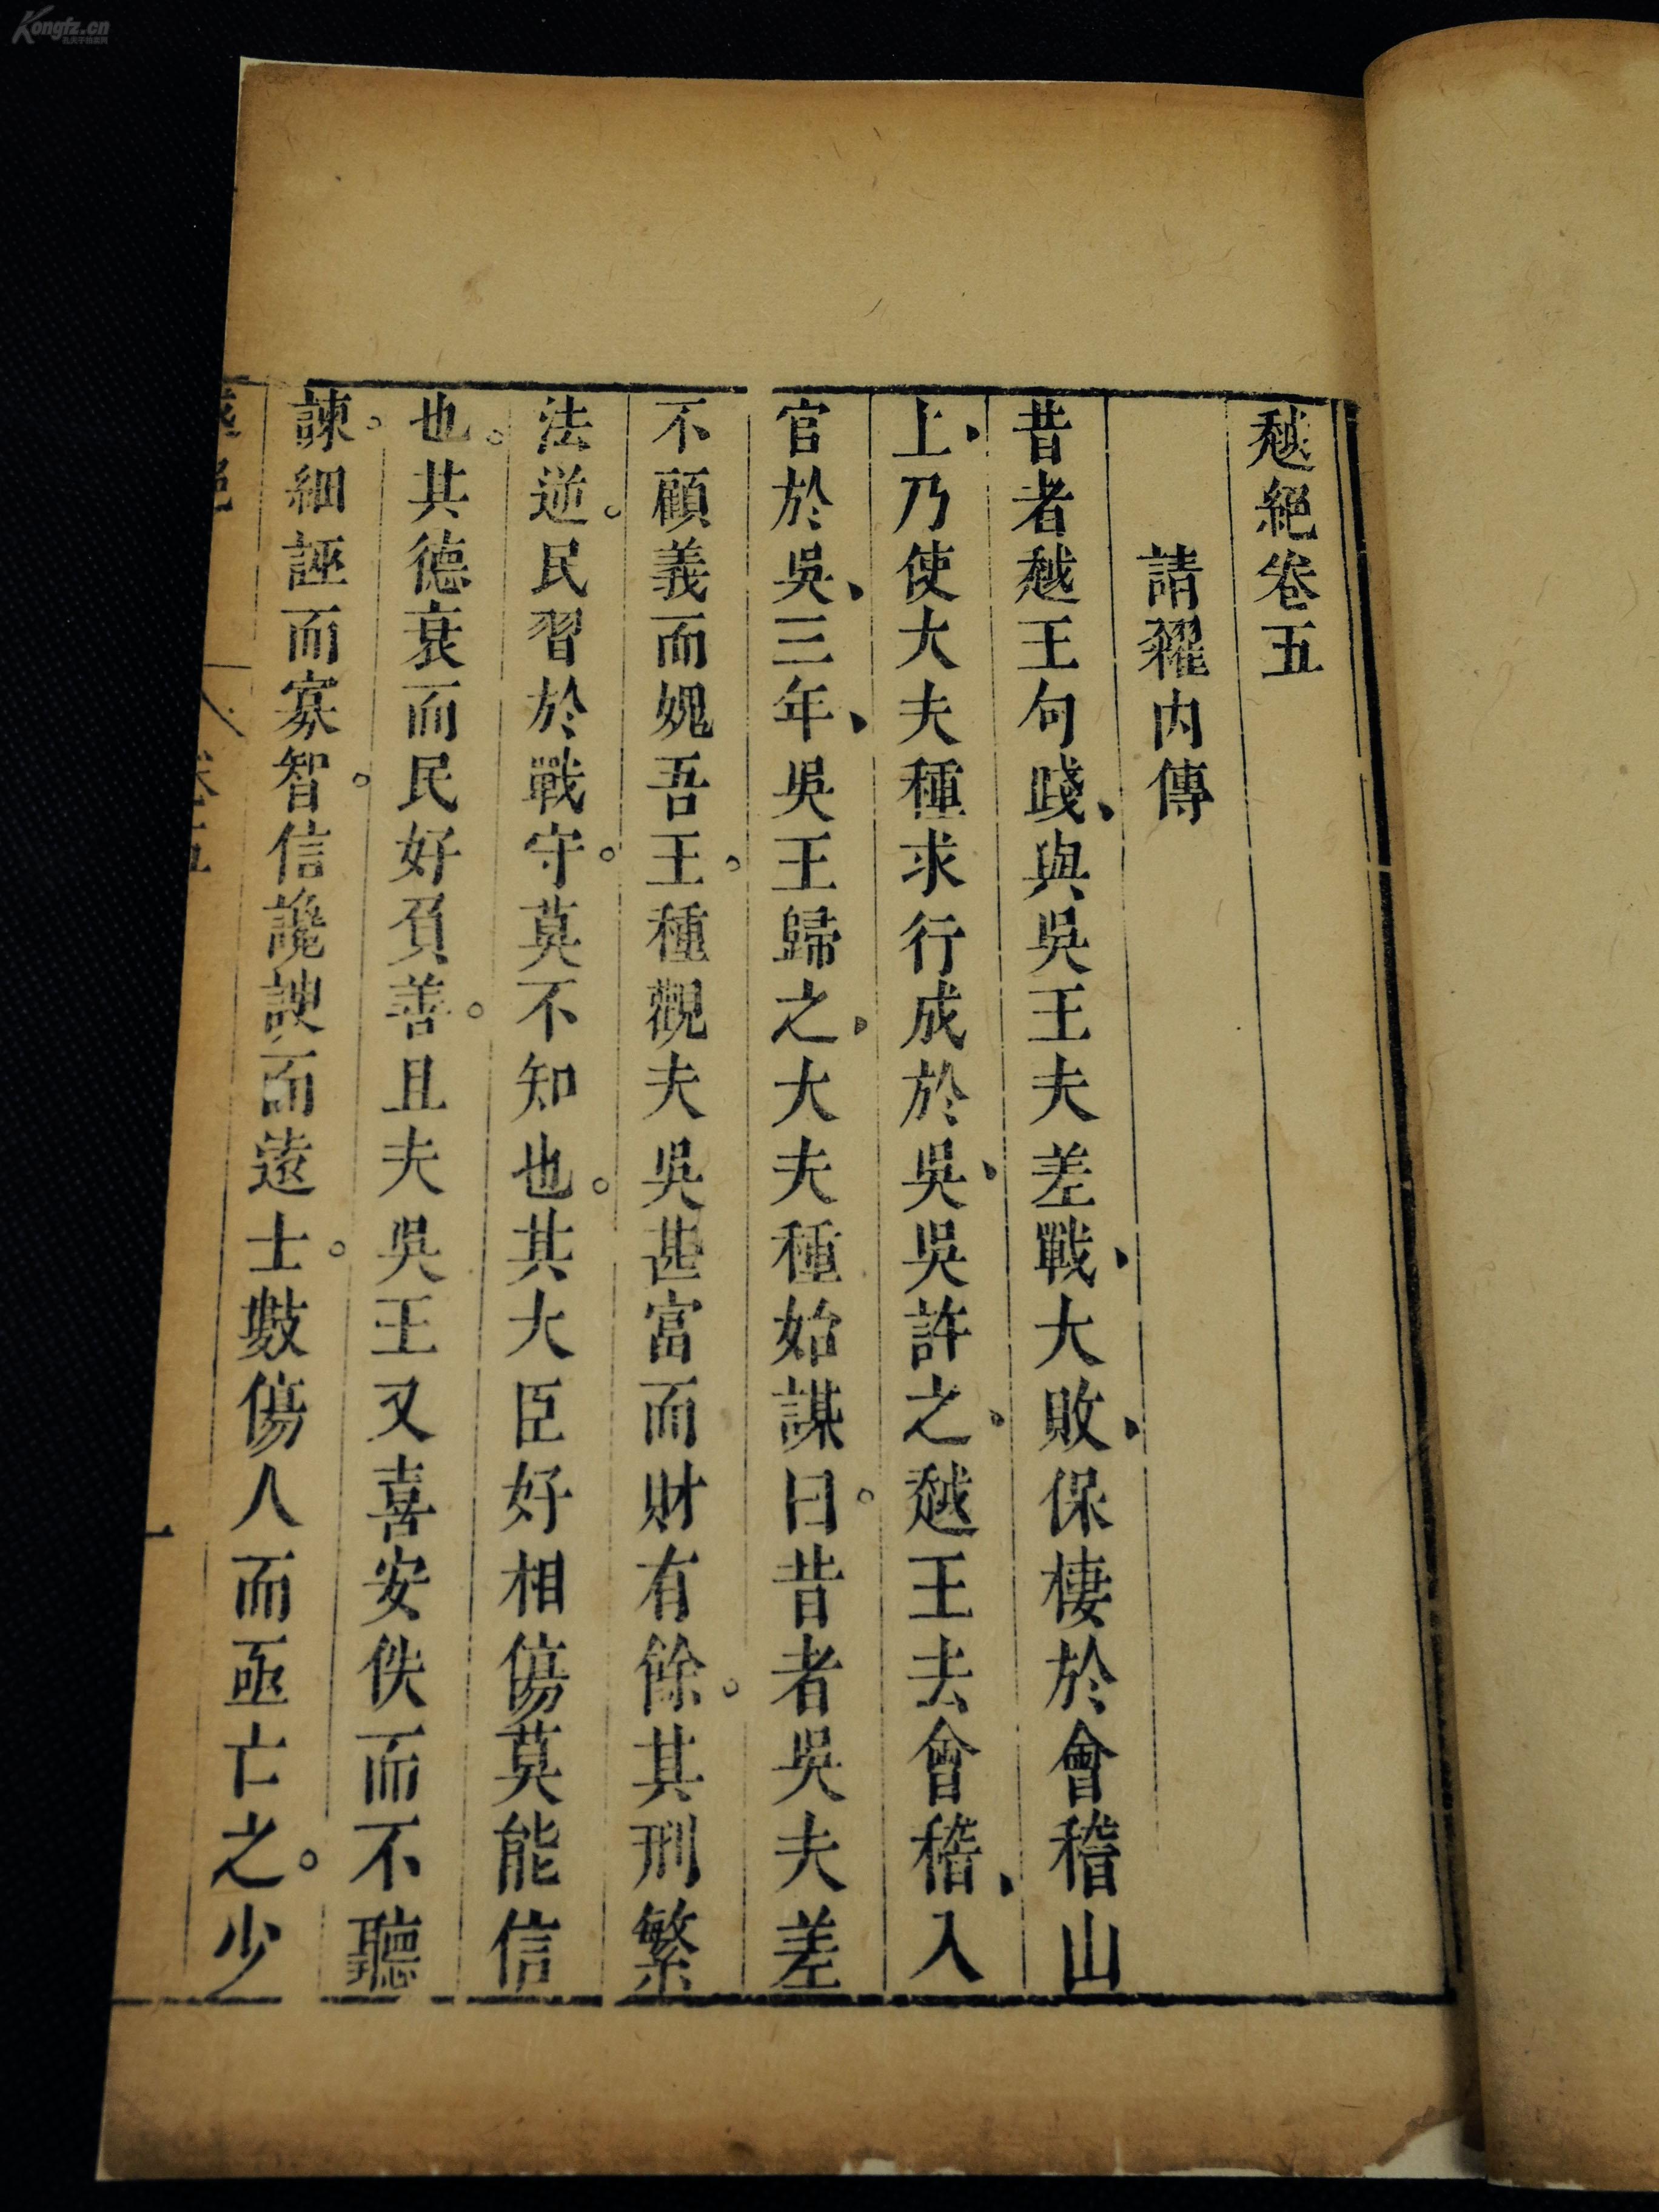 越絕卷五
請糴内傳
昔者越王句踐、與吳王夫差戰、大敗、保棲於會稽山
上、乃使大夫種求行成於吳、吳許之。越王去會稽、入
官於吳、三年、吳王歸之。大夫種始謀曰。昔者吳夫差
不顧義而媿吾王。種觀夫吳甚富而財有餘。其刑繁
法逆。民習於戰守。莫不知也。其大臣好相傷莫能信
也。其德衰而民好負善。且夫吳王又喜安佚而不聽
諫。細誣而寡智。信讒諛而遠士。數傷人而亟亡之。少
一
Kongfz.cn